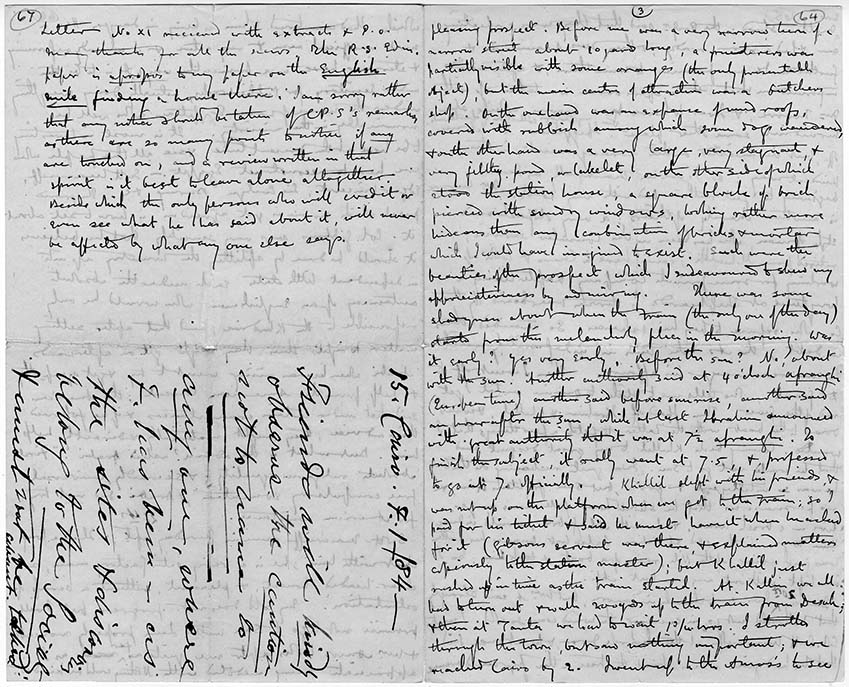 67
Letter No XI received with extracts & P.O.
many thanks for all the news. The R.S. Edin.
paper is apropos to my paper on the English
mile finding a home there. I am sorry rather
that any notice should be taken of C.P.S's remarks
as there are so many points to notice if any
are touched on, and a review written in that
spirit is it best to leave alone altogether.
Beside which the only persons who will credit or
even see what he has said about it, will never
be affected by what any one else says.
15. Cairo 7.1/84
Friends will kindly
observe the caution
not to name to
any one, where
F. has been – as
the sites & discos
belong to the Society
& must not be
talked
about
3
64
pleasing prospect. Before me was a very narrow turn of a
narrow street about 10 yards long, a fruiterers was
partially visible with some oranges (the only presentable
object), but the main centre of attraction was a butchers
shop. On the one hand was an expanse of mud roofs,
covered with rubbish among which some dogs wandered
& on the other hand was a very large, very stagnant, &
very filthy pond or lakelet; on the other side of which
stood the station house, a square block of brick
pierced with sundry windows, looking rather more
hideous than any combination of bricks & mortar
which I could have imagined to exist. Such were the
beauties of the prospect which I endeavoured to shew my
appreciativeness by admiring. There was some
vagueness about when the train (the only one of the day)
starts from this melancholy place in the morning. Was
it early? Yes very early. Before the sun? No, about
with the sun. Another authority said at 4 oclock afranghi
(European time) another said before sunrise, another said
an hour after the sun, while at last Ibrahim announced
with great authority that it was at 7½ afranghi. To
finish the subject, it really went at 7.5, & professed
to go at 7 officially. Khallil slept with his friends &
was not up on the platform when we got to the train; so I
paid for his ticket & said he must have it when he asked
for it (Gibsons servant was there, & explained matters
copiously to the station master); but Khallil just
rushed up in time as the train started. At Kellin we all
had to turn out & walk 200 yards up to the train from Desuk;
& then at Tanta we had to wait 1½ hours. I strolled
through the town but saw nothing important; & we
reached Cairo by 2. I went up to the Amos's to see